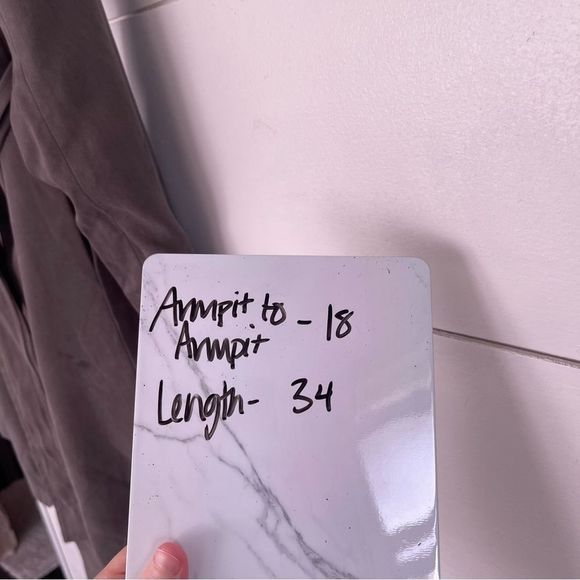 Armpit to - 18
Armpit
Length- 34